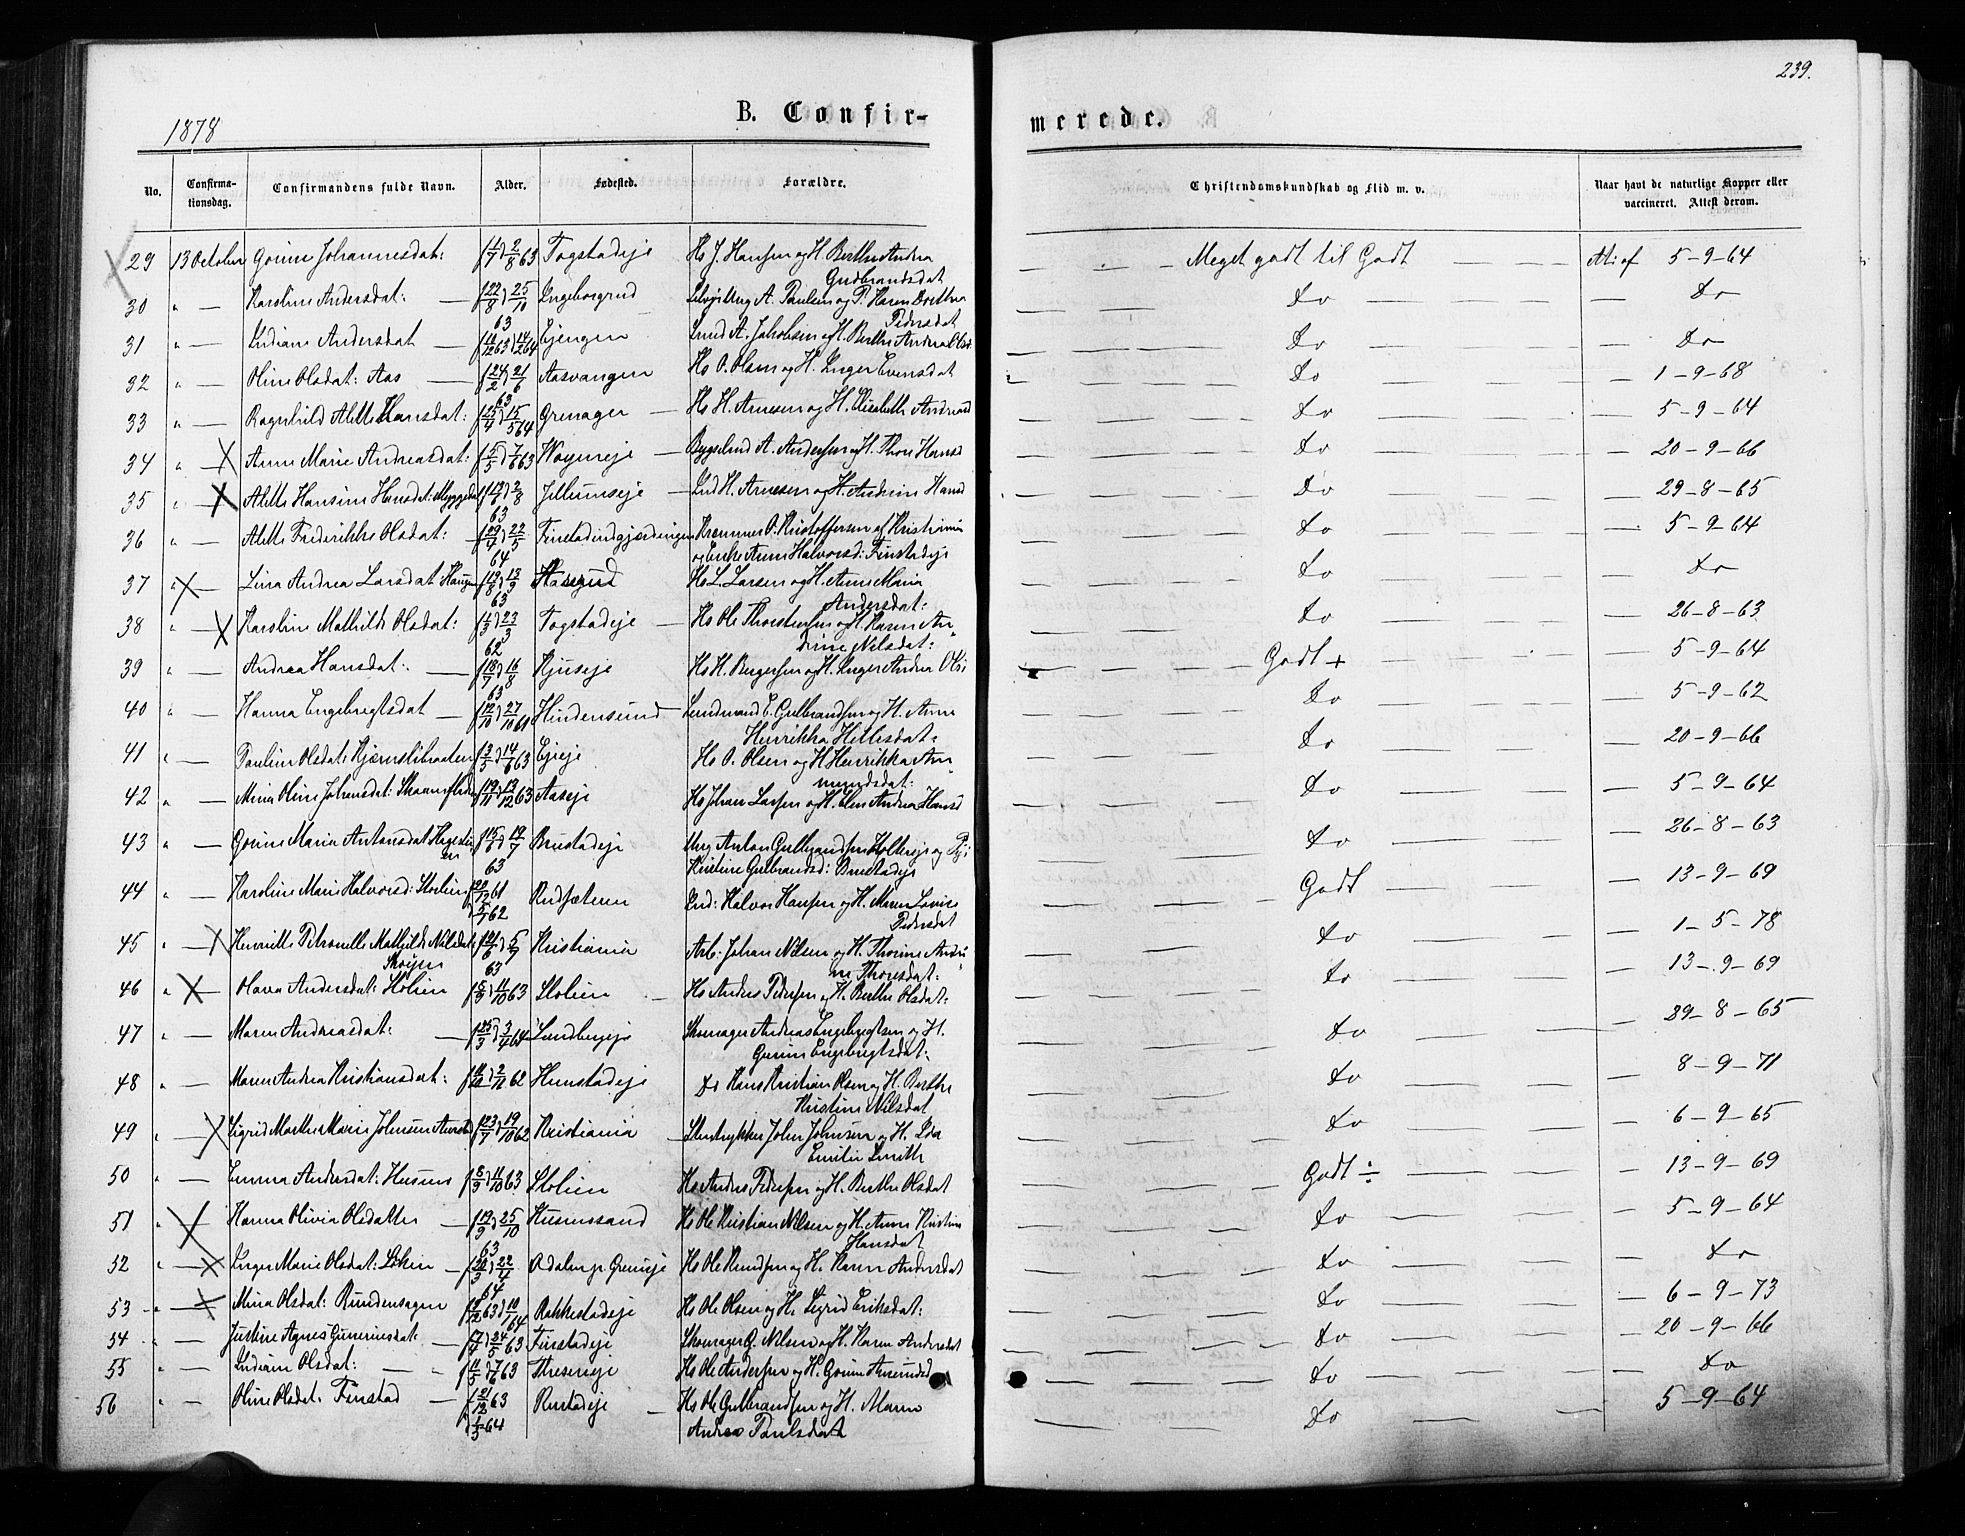 239.
1878
B. Confir-
merede.
No. Confirma-tionsdag. Confirmandens fulde Navn. Alder. Fødested. Forældre.
Christendomskundskab og Flid m. v. Naar havt de naturlige Kopper eller vaccineret. Attest derom.
29 13 October Gorine Johannesdat: 1/7 2/8 63 Fogstadeje Hs J. Hansen og H. Berthe Andrea Gudbrandsdat Meget godt til Godt At: af 5-9-64
30 " — Karoline Andersdat: 22/8 25/10 63 Ingeborgrud A. Paulsen og P. Karen Dorthea Pedersdat Do Do
31 " — Lydiane Andersdat 11/12 63 14/2 64 Ejengen A. Jakobsen og H. Berthe Andrea Olsd Do Do
32 " — Oline Olsdat: Aas 24/2 21/6 63 Aasvangen Hs O. Olsen og H. Inger Evensdat Do 1-9-68
33 " — Ragnhild Alette Hansdat: 15/5 64 Grenager Hs H. Arnesen og H. Elisabeth Do 5-9-64
34 " — Anne Marie Andreasdat: 5/5 7/6 63 A. Andersen og H. Thore Hansd Do 20-9-66
35 " — Alette Hansine Hansdat: 2/8 63 Jellumseje H. Arnesen og H. Andrine Hansd Do 29-8-65
36 " — Alette Frederikke Olsdat: 29/4 22/5 64 O. Kristoffersen af Kristiania og Enke Anne Halvorsd: Finstadeje Do 5-9-64
37 " — Lina Andrea Larsdat Haugen 19/8 13/9 63 Hasegrud Hs L. Larsen og H. Anne Maria Andersdat: Do Do
38 " — Karoline Mathilde Olsdat: 1/3 23/3 62 Fogstadeje — Hs Ole Thorstensen og H. Karen Andrine Nilsdat: Do 26-8-63
39 " — Andrea Hansdat: 18/7 16/8 63 Kjuseje Hs H. Birgersen og H. Inger Andrea Olsd Godt + 5-9-64
40 " — Hanna Engebregtsdat 12/10 27/10 61 Hindensund E. Gulbrandsen og H. Anne Henrikka Hellesdat: Do 5-9-62
41 " — Pauline Olsdat: 3/5 14/6 63 Ejeje Hs O. Olsen og H. Henrikka Amundsdat: Do 20-9-66
42 " — Mina Oline Johansdat: 19/11 13/12 63 Aaseje Hs Johan Larsen og H. Elen Andrea Hansd Do 5-9-64
43 " — Gorine Maria Antonsdat 15/6 19/7 63 Brustadeje Ung Anton Gulbrandsen Holtereje og Pige Kristine Gulbrandsd: Brustadeje Do 26-8-63
44 " — Karoline Marie Halvorsd: Stolien 61 5/1 62 Rudsæteren Ind: Halvor Hansen og H. Maren Lovise Pedersdat Godt 13-9-69
45 " — Henriette Petronelle Mathilde Nilsdat Skøyen 21/6 5/7 63 Kristiania Arb: Johan Nilsen og H. Thorine Andrine Thoresdat: Do 1-5-78
46 " — Olava Andersdat: Stolien 8/9 11/10 63 Stolien Hs Anders Pedersen og H. Berthe Olsdat: Do 13-9-69
47 " — Maren Andreasdat: 25/3 3/4 64 Lundbyeje Skomager Andreas Engebregtsen og H. Gorine Engebregtsdat: Do 29-8-65
48 " — Maren Andrea Kristiansdat: 2/11 62 Hunstadeje Do Hans Kristian Olsen og H. Berthe Kristine Nilsdat Do 8-9-71
49 " — Sigrid Marthe Marie Johnsen 23/7 19/10 62 Kristiania Stentrykker John Johnsen og H. Ida Emilie Smith Do 6-9-65
50 " — Emma Andersdat: Husum 8/9 11/10 63 Stolien Hs Anders Pedersen og H. Berthe Olsdat Godt ÷ 13-9-69
51 " — Hanna Olivia Olsdatter 19/9 25/10 63 Husmosand Hs Ole Kristian Nilsen og H. Anne Kristine Hansdat Do 5-9-64
52 " — Inger Marie Olsdat: 20/3 22/4 64 Hs Ole Knudsen og H. Karen Andersdat Do Do
53 " — Mina Olsdat: Rundensagen 63 10/1 64 Rakkestadeje Hs Ole Olsen og H. Sigrid Eriksdat: Do 6-9-73
54 " — Justine Agnes Gunerinsdat: 7/4 24/5 63 Finstadeje Skomager G. Nilsen og H. Karen Andersdat Do 20-9-66
55 " — Lydiane Olsdat: 11/5 7/6 63 Hs Ole Andersen og H. Gorine Amundsd Do Do
56 " — Oline Olsdat: Finstad 2/12 63 1/3 64 Rustadeje — Hs Ole Gulbrandsen og H. Maren Andrea Paulsdat Do 5-9-64